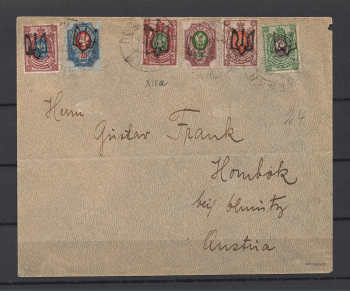 XIIa
Herrn
Gustav Frank
Hombók
bei Olmütz
Austria